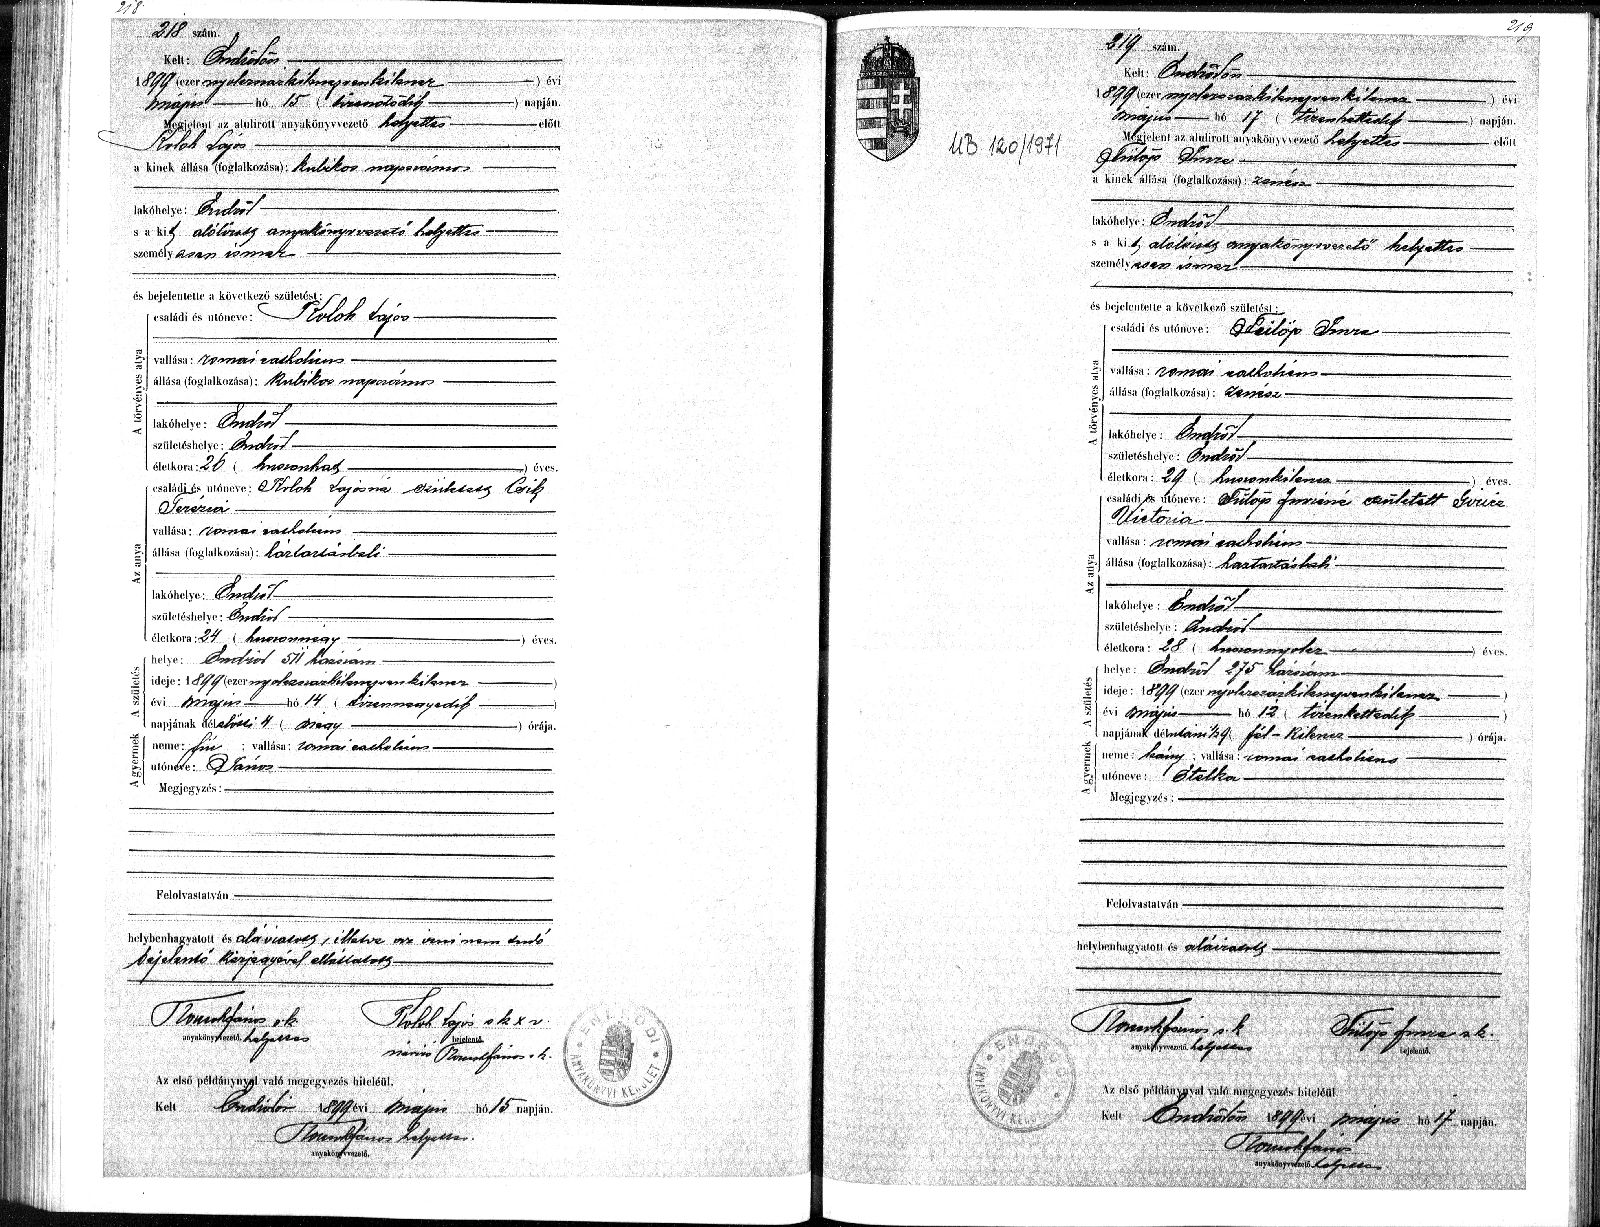 218
218 szám.
Kelt: Endrődön
1899 (ezer nyolczszázkilenczvenkilencz ) évi
május hó 15 ( tizenötödik ) napján.
Megjelent az alulirott anyakönyvvezető helyettes előtt
Koloh Lajos
a kinek állása (foglalkozása): kubikos napszámos
lakóhelye: Endrőd
s a kit alólirott anyakönyvvezető helyettes
személyesen ismer
és bejelentette a következő születést:
A törvényes atya
családi és utóneve: Koloh Lajos
vallása: romai catholicus
állása (foglalkozása): kubikos napszámos
lakóhelye: Endrőd
születéshelye: Endrőd
életkora: 26 ( huszonhat ) éves.
Az anya
családi és utóneve: Koloh Lajosné született Csik
Terézia
vallása: romai catholicus
állása (foglalkozása): háztartásbeli
lakóhelye: Endrőd
születéshelye: Endrőd
életkora: 24 ( huszonnégy ) éves.
A születés
helye: Endrőd 511 házszám
ideje: 1899 (ezer nyolczszázkilenczvenkilencz )
évi május hó 14 ( tizennegyedik )
napjának délelőtti 4 ( négy ) órája.
A gyermek
neme: fiu ; vallása: romai catholicus
utóneve: János
Megjegyzés:
Felolvastatván
helybenhagyatott és aláiratott, illetve az irni nem tudó
bejelentő kézjegyével elláttatott
János s.k. Koloh Lajos s k x v.
anyakönyvvezető. helyettes bejelentő.
névíró János s.k.
ENDRŐDI ANYAKÖNYVI KERÜLET
Az első példánynyal való megegyezés hiteléül.
Kelt Endrődön 1899 évi május hó 15 napján.
János helyettes.
anyakönyvvezető.
219
219 szám.
UB 120/1971
Kelt: Endrődön
1899 (ezer nyolczszázkilenczvenkilencz ) évi
május hó 17 ( tizenhetedik ) napján.
Megjelent az alulirott anyakönyvvezető helyettes előtt
Fülöp Imre
a kinek állása (foglalkozása): zenész
lakóhelye: Endrőd
s a kit alólirott anyakönyvvezető helyettes
személyesen ismer
és bejelentette a következő születést:
A törvényes atya
családi és utóneve: Fülöp Imre
vallása: romai catholicus
állása (foglalkozása): zenész
lakóhelye: Endrőd
születéshelye: Endrőd
életkora: 29 ( huszonkilencz ) éves.
Az anya
családi és utóneve: Fülöp Imréné született
Victoria
vallása: romai catholicus
állása (foglalkozása): haztartásbeli
lakóhelye: Endrőd
születéshelye: Endrőd
életkora: 28 ( huszonnyolcz ) éves.
A születés
helye: Endrőd 275 házszám
ideje: 1899 (ezer nyolczszázkilenczvenkilencz )
évi május hó 12 ( tizenkettedik )
napjának délutáni ½9 ( fél-kilencz ) órája.
A gyermek
neme: leány ; vallása: romai catholicus
utóneve: Etelka
Megjegyzés:
Felolvastatván
helybenhagyatott és aláiratott
János s.k Fülöp Imre s.k.
anyakönyvvezető. helyettes bejelentő.
ENDRŐDI ANYAKÖNYVI KERÜLET
Az első példánynyal való megegyezés hiteléül.
Kelt Endrődön 1899 évi május hó 17 napján.
János
anyakönyvvezető. helyettes